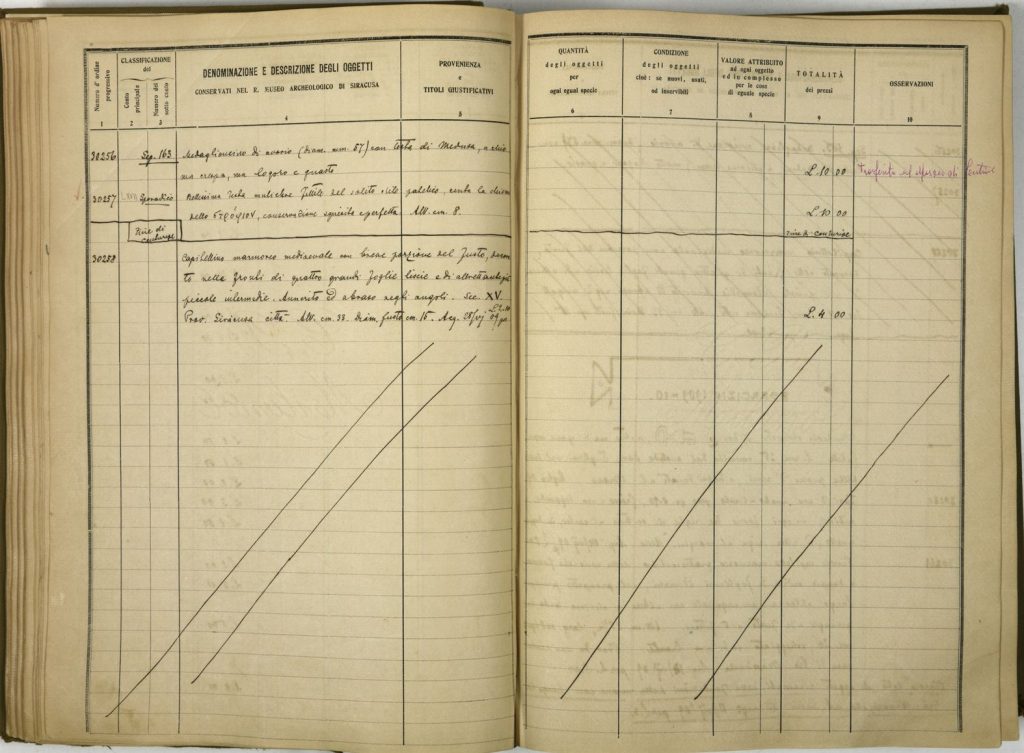 Numero d'ordine progressivo
CLASSIFICAZIONE
del
Conto principale
Numero del sotto conto
DENOMINAZIONE E DESCRIZIONE DEGLI OGGETTI
CONSERVATI NEL R. MUSEO ARCHEOLOGICO DI SIRACUSA
PROVENIENZA
e
TITOLI GIUSTIFICATIVI
1 2 3 4 5
30256 Sep. 163 Medaglioncino di avorio (diam. mm. 57) con testa di Medusa, a chio
ma crespa, ma logoro e guasto
30257 Sporadico Bellissima testa muliebre fittile del solito stile
dello στρόφιον, conservazione squisita e perfetta. Alt. cm. 8.
Fine di
centuripe
30258 Capitellino marmoreo medioevale con breve porzione del fusto, decora
to nella fronte di quattro grandi foglie liscie e di altrettante più
piccole intermedie. Annerito ed abraso negli angoli. Sec. XV.
Prov. Siracusa città. Alt. cm. 33. Diam. fusto cm. 15. Acq. 28/VI 09
QUANTITÀ
degli oggetti
per
ogni egual specie
6
CONDIZIONE
degli oggetti
cioè: se nuovi, usati,
od inservibili
7
VALORE ATTRIBUITO
ad ogni oggetto
ed in complesso
per le cose
di eguale specie
8
TOTALITÀ
dei prezzi
9
OSSERVAZIONI
10
L. 10 00 Trasferito al Museo di Lentini
L. 10 00
Fine di centuripe
L. 4 00